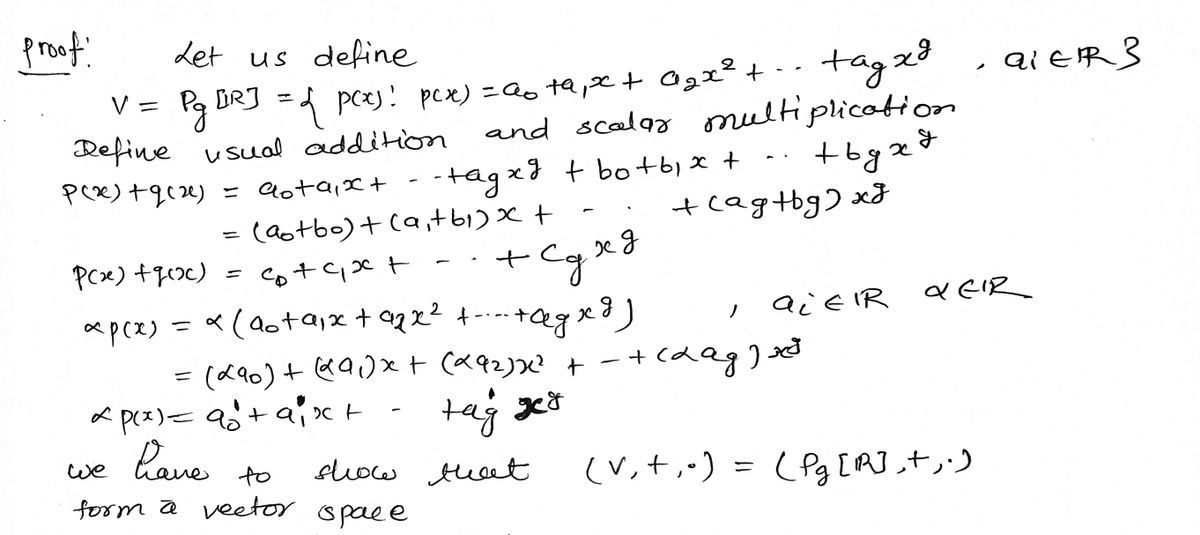 Proof: Let us define
V = P9[ℝ] = { p(x): p(x) = a0 + a1x + a2x² + .. + a9x⁹ , ai ∈ ℝ }
Define usual addition and scalar multiplication
p(x) + q(x) = a0 + a1x + - - + a9x⁹ + b0 + b1x + .. + b9x⁹
= (a0+b0) + (a1+b1)x + - . + (a9+b9)x⁹
p(x) + q(x) = c0 + c1x + - .. + c9x⁹
αp(x) = α(a0 + a1x + a2x² + ---- + a9x⁹) , ai ∈ ℝ α ∈ ℝ
= (αa0) + (αa1)x + (αa2)x² + - + (αa9)x⁹
αp(x) = a0' + a1'x + - + a9'x⁹
we have to show that (V,+,·) = (P9[ℝ],+,·)
form a vector space